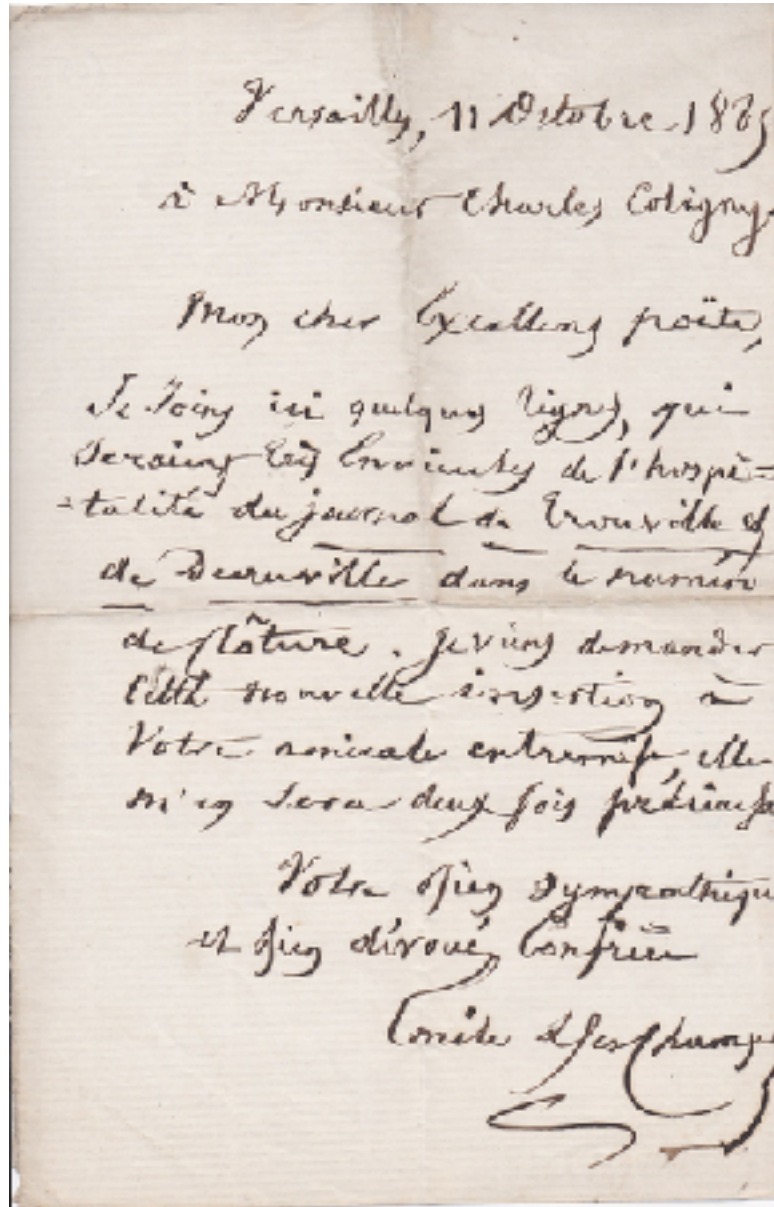 Versailles, 11 Octobre 1865
à Monsieur Charles Coligny.
Mon cher Excellent poëte,
Je Joins ici quelques lignes, qui
Seraient très Envieuses de l'hospi-
-talité du journal de Trouville et
de Deauville dans le numéro
de clôture. Je viens demander
Cette nouvelle insertion à
Votre amicale entremise, elle
m'en Sera deux fois précieuse
Votre bien Sympathique
et bien dévoué Confrère
Emile Deschamps